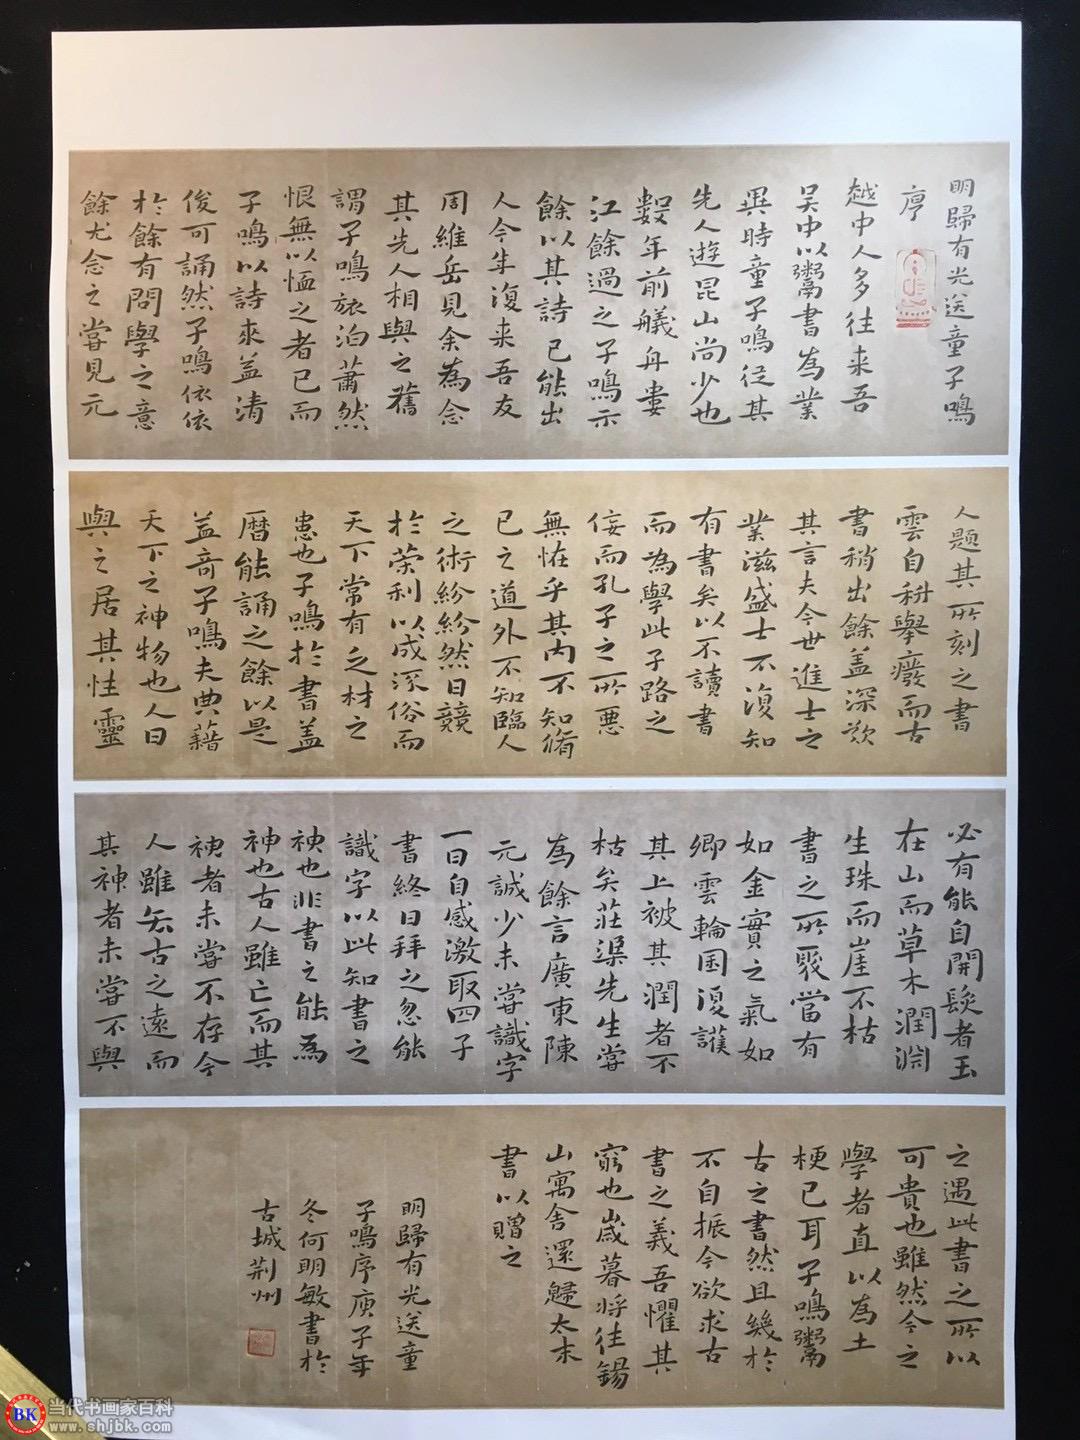 明歸有光送童子鳴
序
越中人多往来吾
吴中以鬻書為業
異時童子鳴従其
先人遊昆山尚少也
數年前艤舟婁
江餘過之子鳴示
餘以其詩已能出
人今年復来吾友
周維岳見余為念
其先人相與之舊
謂子鳴旅泊蕭然
恨無以恤之者已而
子鳴以詩来益清
俊可誦然子鳴依依
於餘有問學之意
餘尤念之嘗見元
人題其所刻之書
雲自科舉癈而古
書稍出餘盖深歎
其言夫今世進士之
業滋盛士不復知
有書矣以不讀書
而為學此子路之
佞而孔子之所惡
無怪乎其内不知脩
已之道外不知臨人
之術紛紛然日競
於荣利以成涿俗而
天下常有乏材之
患也子鳴於書盖
曆能誦之餘以是
益奇子鳴夫典藉
天下之神物也人日
與之居其性靈
必有能自開發者玉
在山而草木潤淵
生珠而崖不枯
書之所聚當有
如金寳之氣如
卿雲輪囯復護
其上被其潤者不
枯矣莊渠先生嘗
為餘言廣東陳
元誠少未嘗識字
一日自感激取四子
書終日拜之忽能
識字以此知書之
神也非書之能為
神也古人雖亡而其
神者未嘗不存今
人雖去古之遠而
其神者未嘗不與
之遇此書之所以
可貴也雖然今之
學者直以為土
梗已耳子鳴鬻
古之書然且幾於
不自振今欲求古
書之義吾懼其
窮也歲暮将往錫
山寓舍還歸太末
書以贈之
明歸有光送童
子鳴序庚子年
冬何明敏書於
古城荆州
BK
当代书画家百科
www.shjbk.com